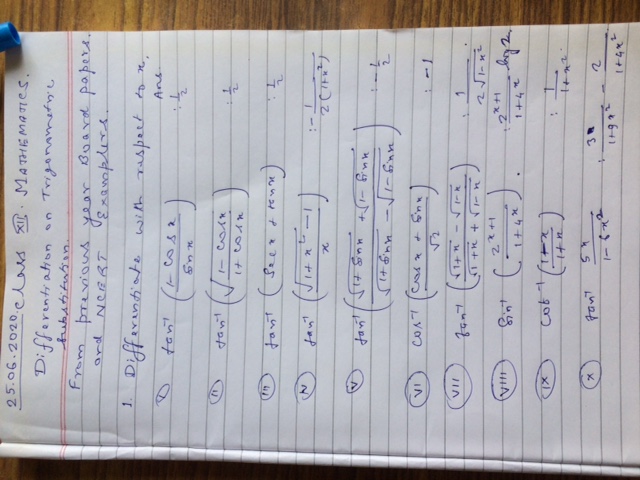 25.06.2020. Class XII. MATHEMATICS.
Differentiation on Trigonometric
Substitution.
From previous year Board papers.
and NCERT Examplers.
1. Differentiate with respect to x. Ans.
(I) tan⁻¹ ((1 - cos x)/(sin x)) : 1/2
(II) tan⁻¹ (√((1 - cos x)/(1 + cos x))) : 1/2
(III) tan⁻¹ (sec x + tan x) : 1/2
(IV) tan⁻¹ ((√(1+x²) - 1)/x) : - 1/(2(1+x²))
(V) tan⁻¹ ((√(1+sin x) + √(1-sin x))/(√(1+sin x) - √(1-sin x))) : - 1/2
(VI) cos⁻¹ ((cos x + sin x)/√2) : -1
(VII) tan⁻¹ ((√(1+x) - √(1-x))/(√(1+x) + √(1-x))) : 1/(2√(1-x²))
(VIII) sin⁻¹ (2^(x+1)/(1+4^x)) . : 2^(x+1)/(1+4^x) log 2
(IX) cot⁻¹ ((1-x)/(1+x)) : 1/(1+x²)
(X) tan⁻¹ 5x/(1-6x²) : 3/(1+9x²) - 2/(1+4x²)